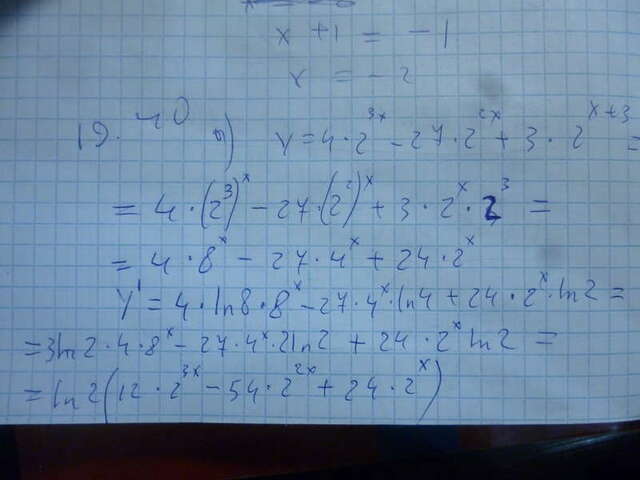 x + 1 = - 1
x = - 2
19. 40 а) y = 4 · 2^{3x} - 27 · 2^{2x} + 3 · 2^{x+3} =
= 4 · (2^3)^x - 27 · (2^2)^x + 3 · 2^x · 2^3 =
= 4 · 8^x - 27 · 4^x + 24 · 2^x
y' = 4 · ln8 · 8^x - 27 · 4^x · ln4 + 24 · 2^x · ln2 =
= 3ln2 · 4 · 8^x - 27 · 4^x · 2ln2 + 24 · 2^x ln2 =
= ln2(12 · 2^{3x} - 54 · 2^{2x} + 24 · 2^x)